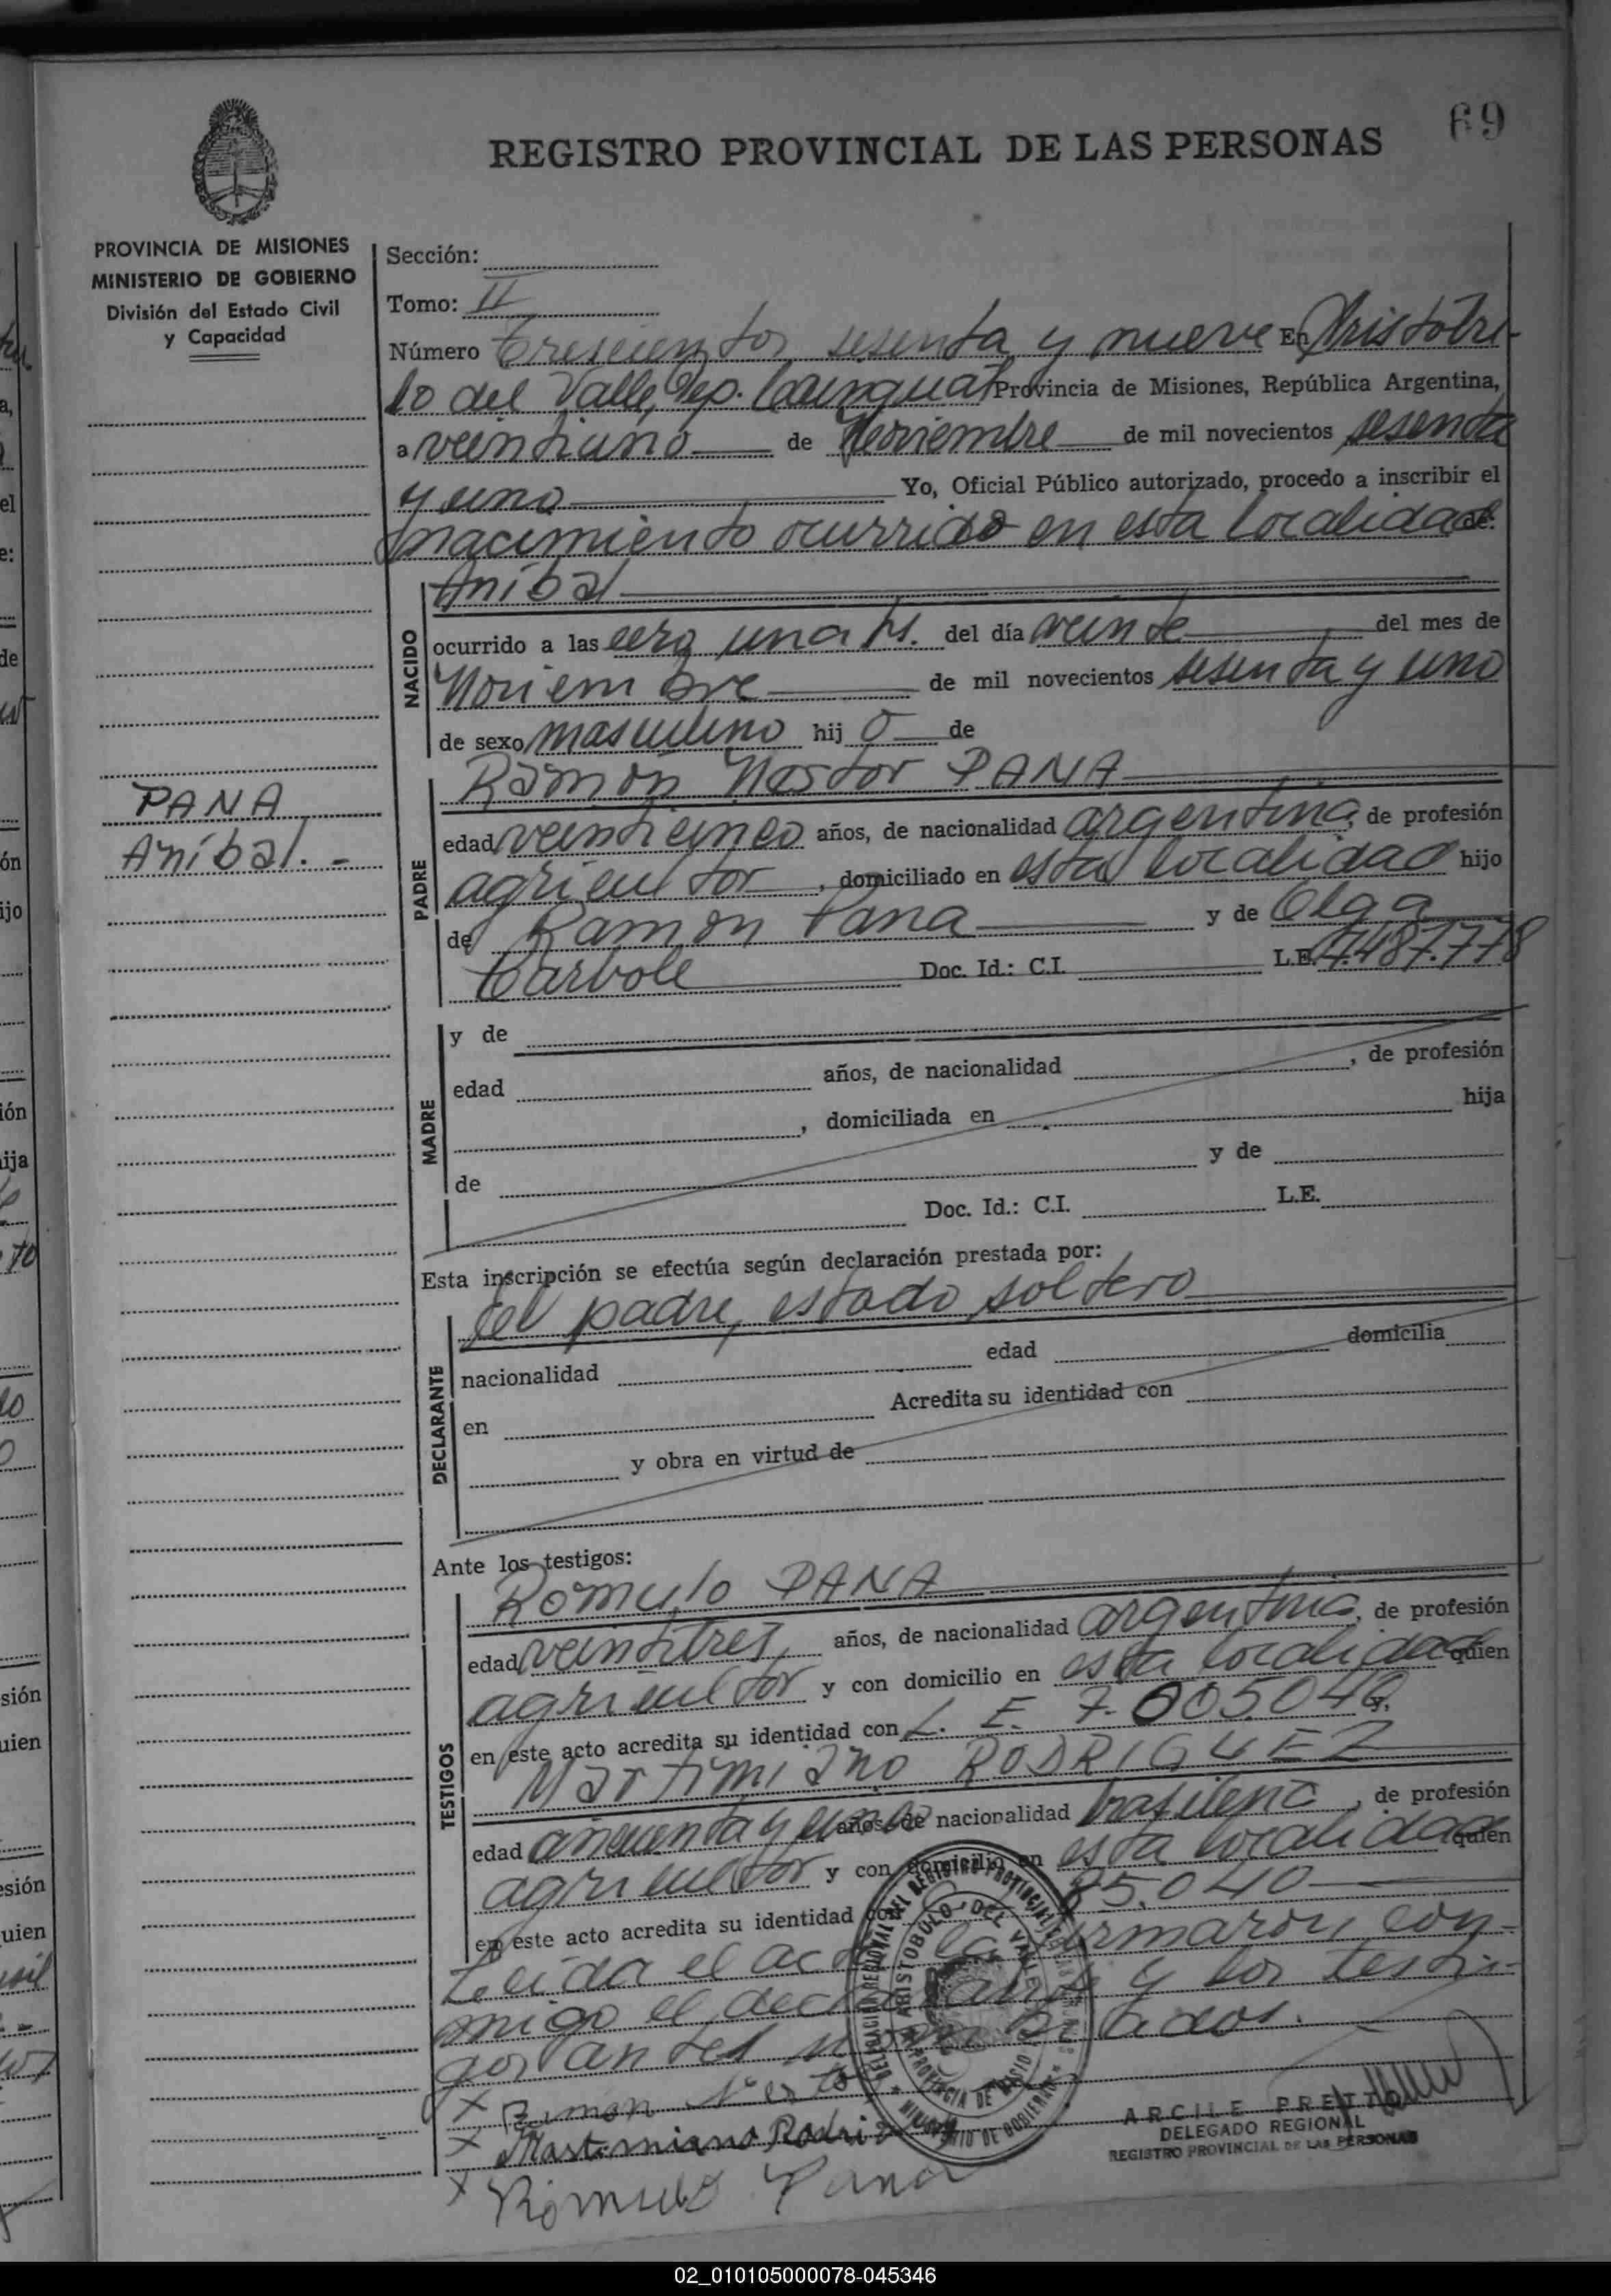 69
REGISTRO PROVINCIAL DE LAS PERSONAS
PROVINCIA DE MISIONES
MINISTERIO DE GOBIERNO
División del Estado Civil
y Capacidad
PANA
Aníbal.-
Sección:
Tomo: II
Número Trescientos sesenta y nueve En Aristóbu-
lo del Valle, Dep. Cainguás Provincia de Misiones, República Argentina,
a veintiuno de Noviembre de mil novecientos sesenta
y uno Yo, Oficial Público autorizado, procedo a inscribir el
nacimiento ocurrido en esta localidad de:
NACIDO
Aníbal
ocurrido a las cero una hs. del día veinte del mes de
Noviembre de mil novecientos sesenta y uno
de sexo masculino hij o de
PADRE
Ramón Nestor PANA
edad veinticinco años, de nacionalidad argentina, de profesión
agricultor, domiciliado en esta localidad hijo
de Ramón Pana y de Olga
Carvole Doc. Id.: C.I. L.E. 4.487.778
MADRE
y de
edad años, de nacionalidad , de profesión
, domiciliada en hija
de y de
Doc. Id.: C.I. L.E.
Esta inscripción se efectúa según declaración prestada por:
DECLARANTE
del padre, estado soltero
nacionalidad edad domicilia
en Acredita su identidad con
y obra en virtud de
Ante los testigos:
TESTIGOS
Romulo PANA
edad veintitres años, de nacionalidad argentina, de profesión
agricultor y con domicilio en esta localidad quien
en este acto acredita su identidad con L. E. 7.805.046 y,
Martimiano RODRIGUEZ
edad cincuenta y cinco años, de nacionalidad brasilera, de profesión
agricultor y con domicilio en esta localidad quien
en este acto acredita su identidad con 85.040
Leida el acta la firmaron con-
migo el declarante y los testi-
gos antes mencionados.
x Ramón Nesto
x Mastimiano Rodri
x Romulo Pana
DELEGACION REGIONAL DEL REGISTRO PROVINCIAL
ARISTOBULO DEL VALLE
PROVINCIA DE MISIO
MINISTERIO DE GOBIERNO
ARCILE PRETTO
DELEGADO REGIONAL
REGISTRO PROVINCIAL DE LAS PERSONAS
02_010105000078-045346